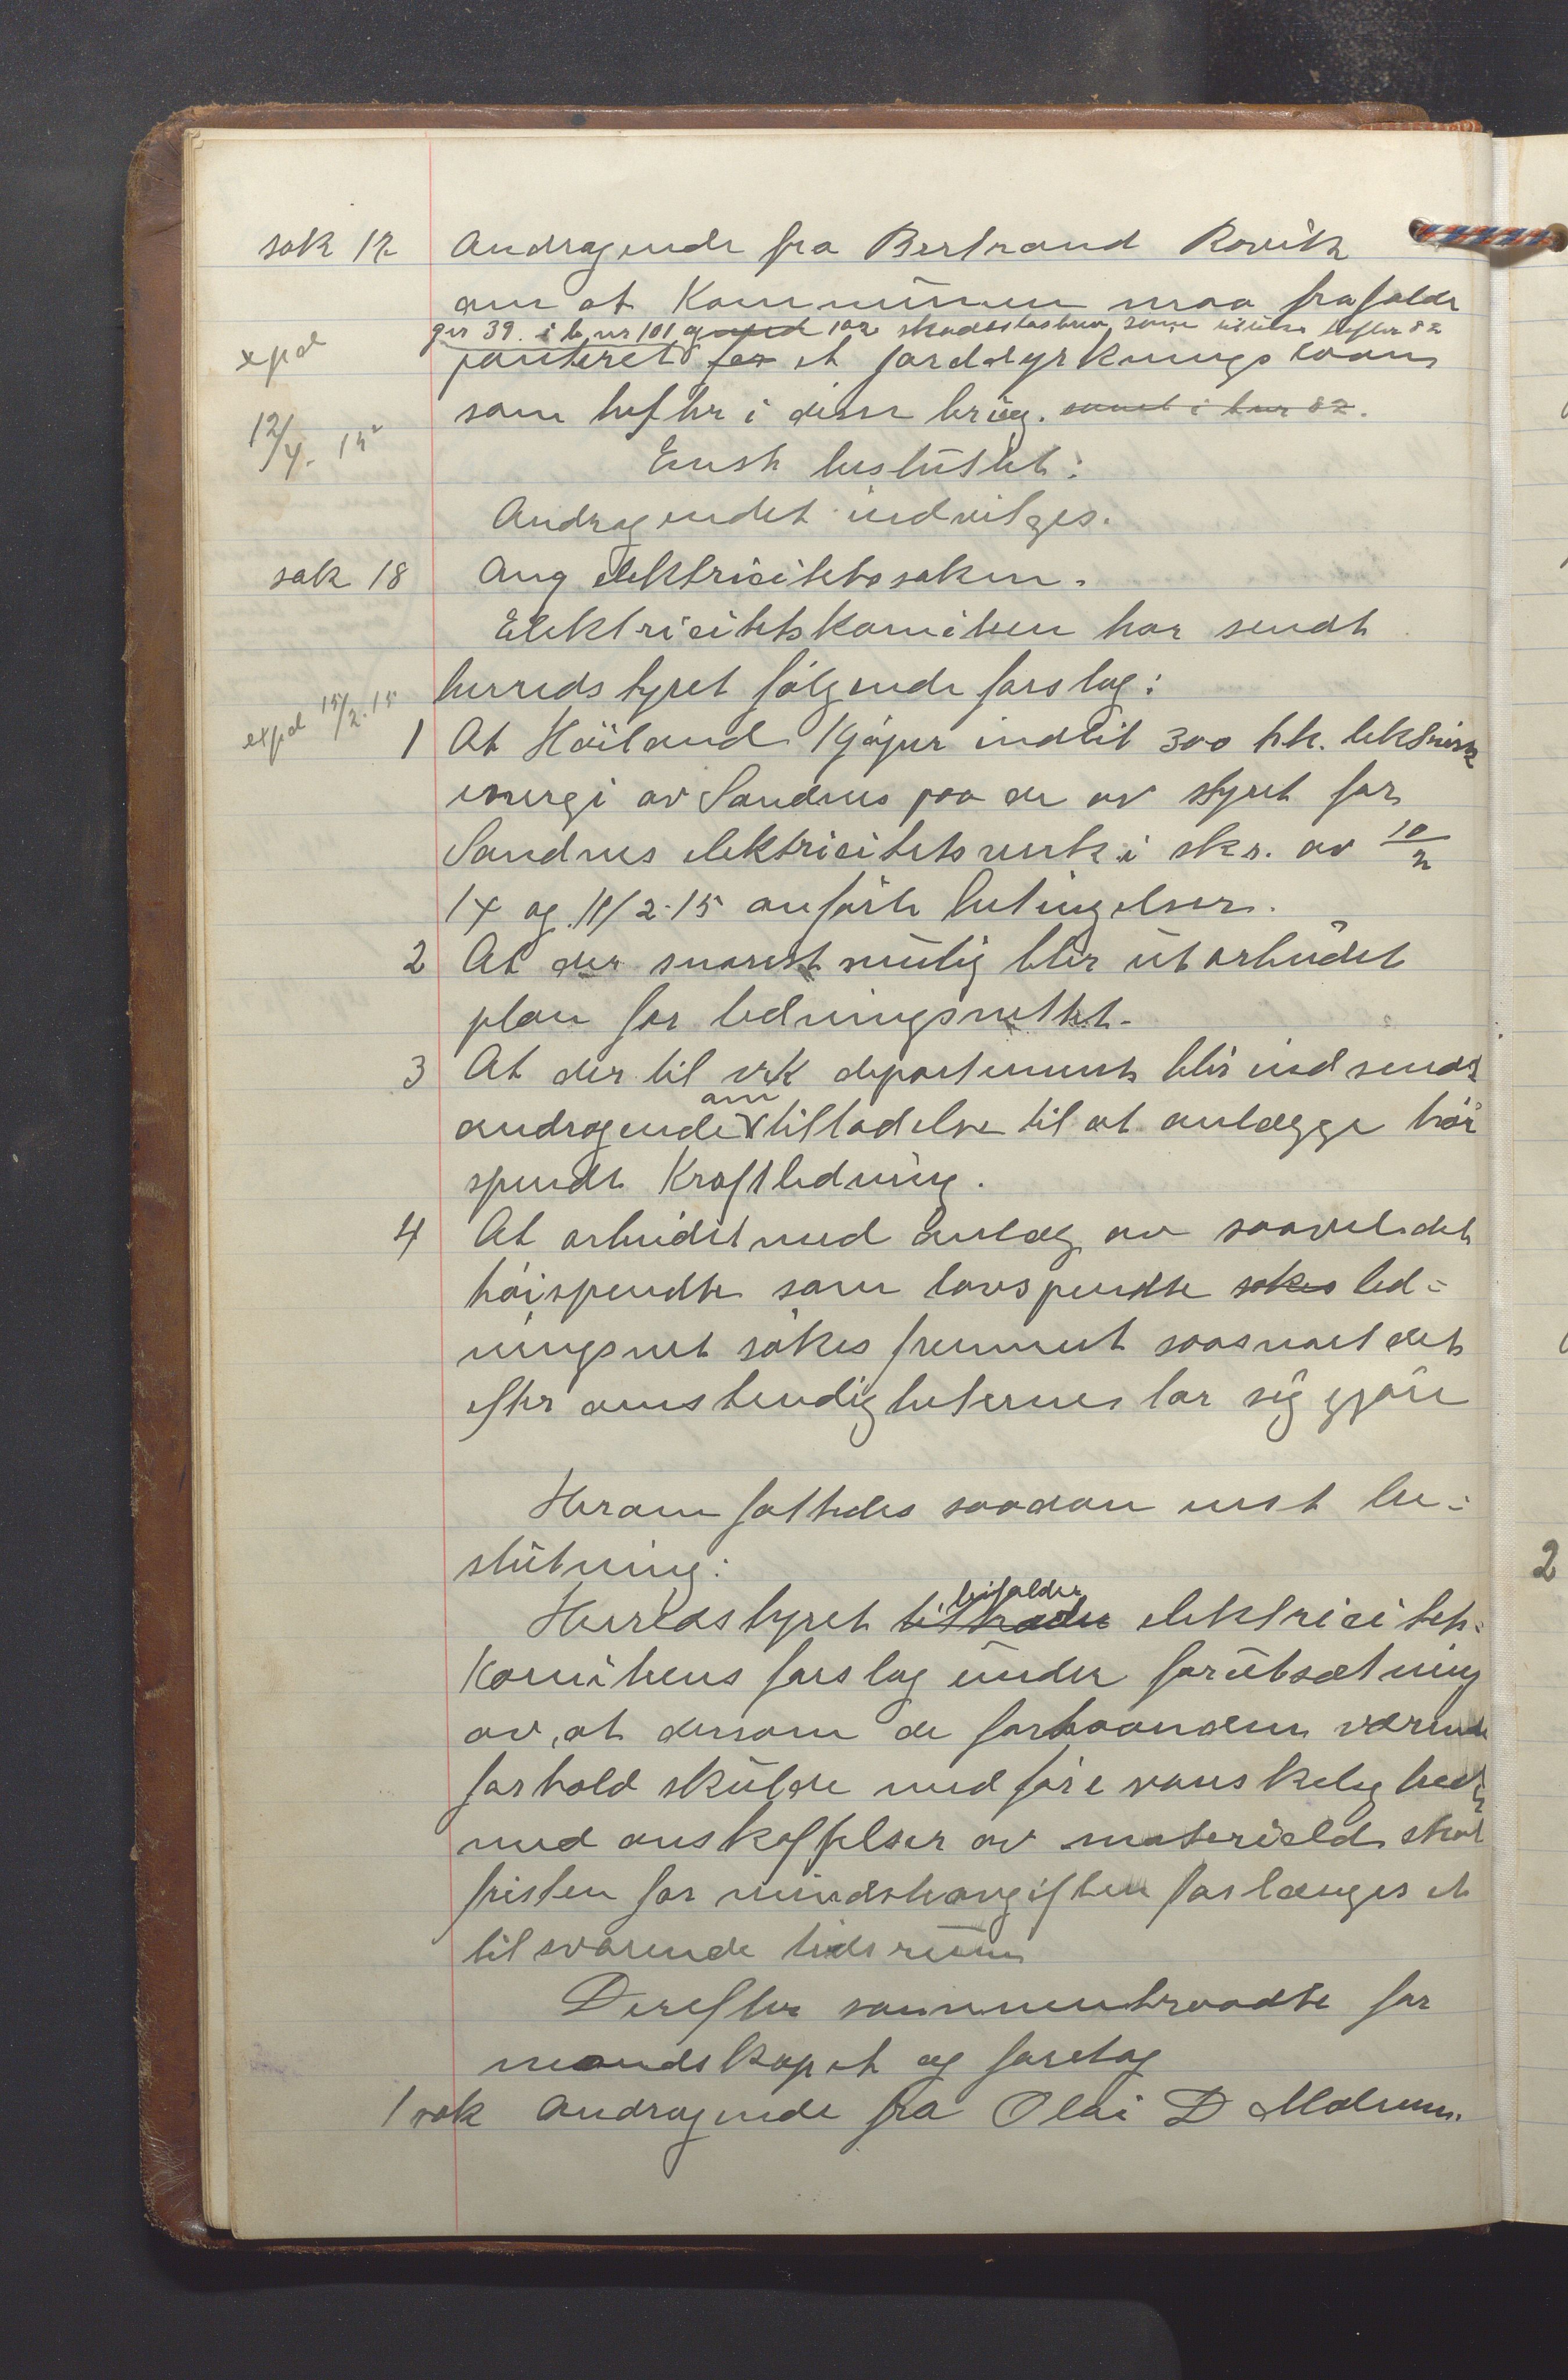 sak 17 Andragende fra Bertrand Rovik
om at Kommunen maa frafalde
gnr 39. i b.nr 101 og 102 skadesløsbrev, som
expd panteret for et jorddyrknings laan
12/4. 15 som hefter i disse br. samt i bnr 82.
Enst besluttet:
Andragendet indvilges.
sak 18 Ang elektricitetssaken.
Elektricitetskomiteen har sendt
herredstyret følgende forslag:
expd 15/2.15
1 At Høiland kjøper indtil 300 hk. elektrisk
energi av Sandnes paa de av styret for
Sandnes elektricitetsverk i skr. av 10/2
14 og 11/2-15 anførte betingelser.
2 At der snarest mulig blir utarbeidet
plan for ledningsnettet.
3 At der til departement blir indsendt
andragende om tilladelse til at anlægge høi
spendt Kraftledning.
4 At arbeidet med anlæg av saavel det
høispendte som lavspendte søkes led-
ningsnet søkes fremmet saasnart det
efter omstendigheterne lar sig gjøre
Herom fattedes saadan enst be-
slutning:
Herredstyret tiltræder bifalder elektricitets-
Komiteens forslag under forutsætning
av, at dersom de forhaanden værende
forhold skulde medføre vanskelighed
med anskaffelser av materield skal
fristen for mindsteavgiften forlænges et
tilsvarende tidsrum
Derefter sammentraadte for
mandskapet og foretog
1 sak Andragende fra Olai D